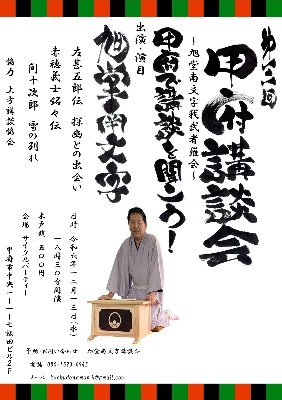 甲府講談会
～旭堂南文字我武者羅会～
甲府で講談を聞こう！
出演・演目
旭堂南文字
左甚五郎伝 探幽との出会い
赤穂義士銘々伝
間十次郎 雪の別れ
協力 上方講談協会
日時 令和六年一二月一三日
一八時三〇分開演
木戸銭 五〇〇円
会場 サイクルパーティー
甲府市中央
飯田ビル２Ｆ
予約・お問い合わせ 旭堂南文字講談会
電話
メール